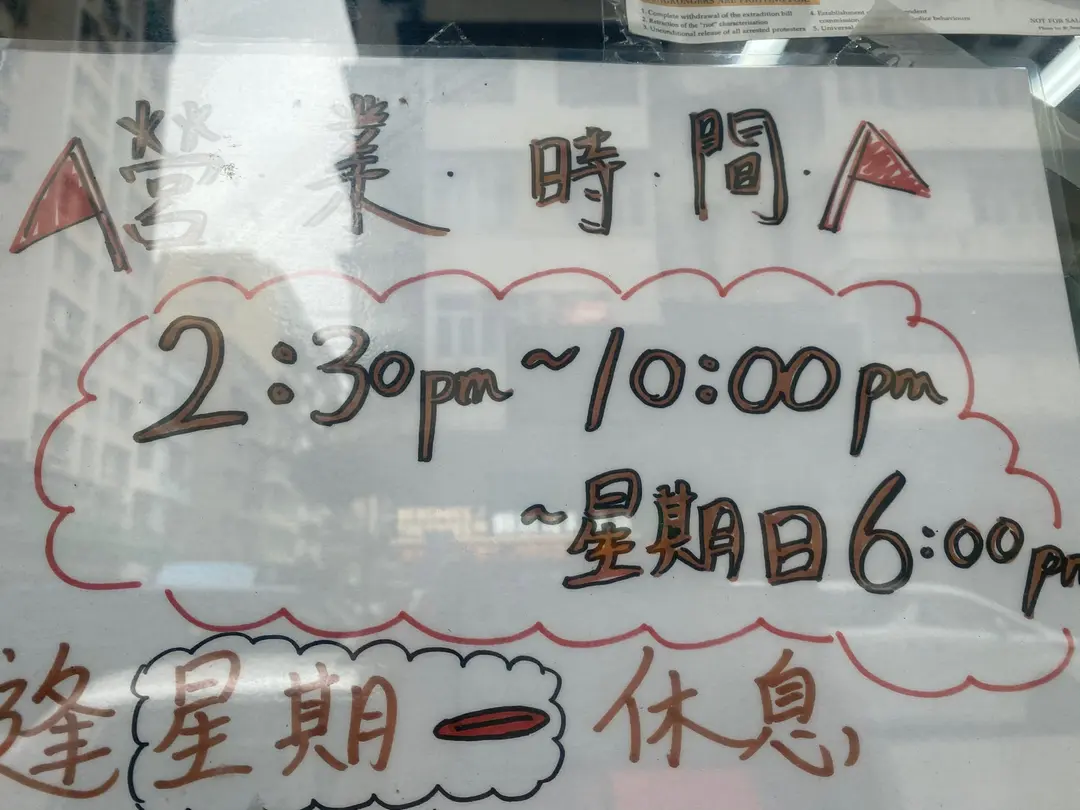 1. Complete withdrawal of the extradition bill
2. Retraction of the "riot" characterisation
3. Unconditional release of all arrested protesters
4. Establishment
commission
5. Universal
NOT FOR SALE
營.業.時.間.
2:30pm ~10:00pm
~星期日6:00pm
逢星期一休息